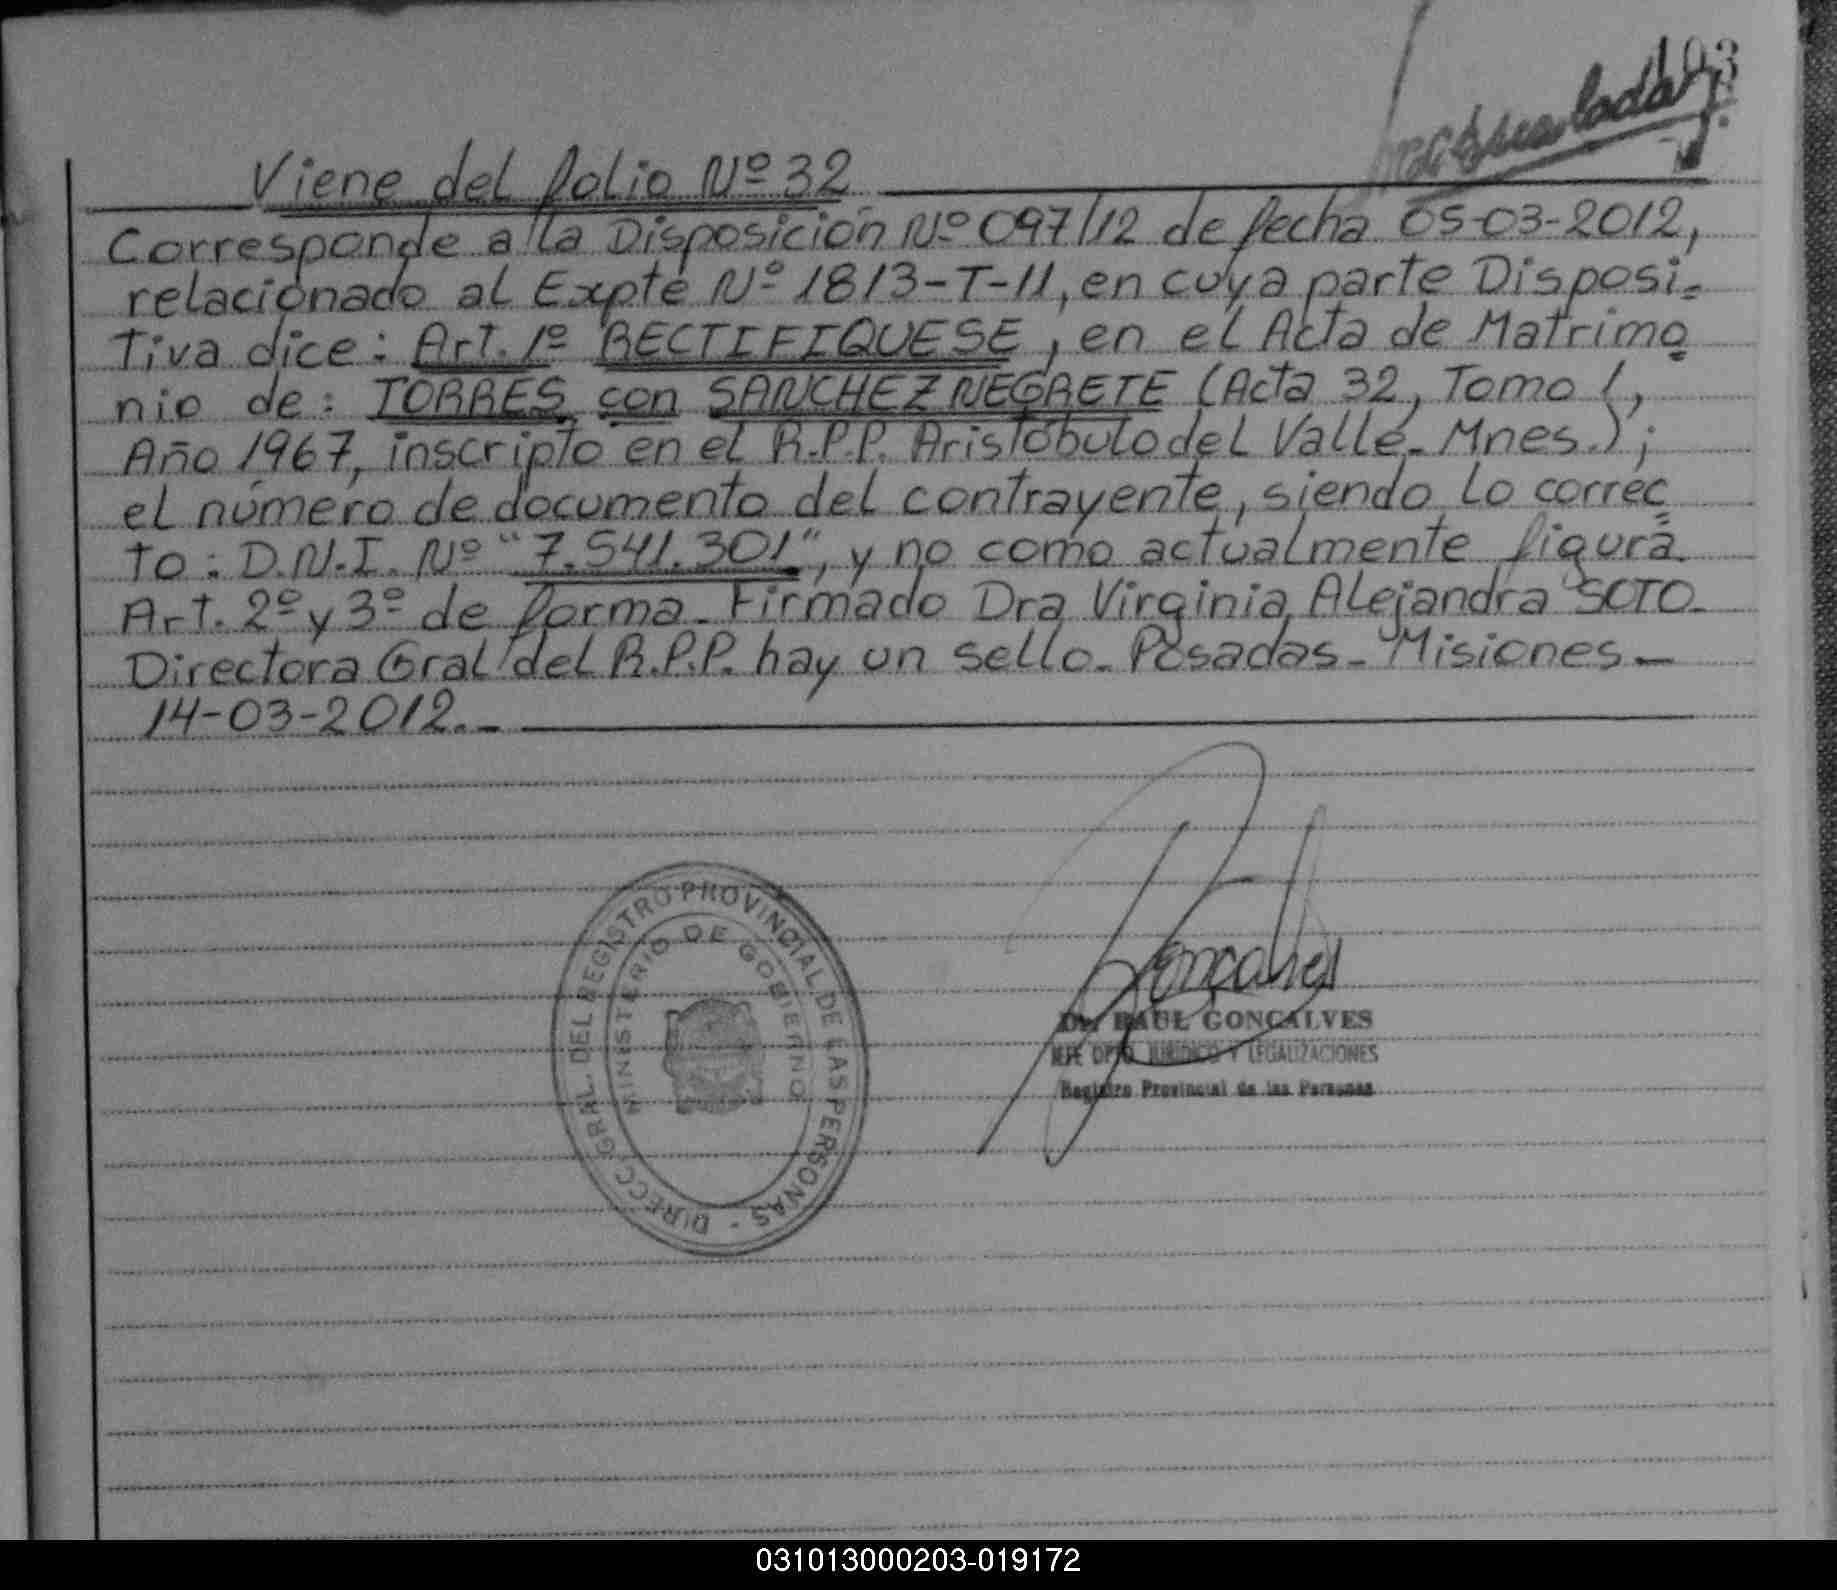 Viene del folio Nº 32
Corresponde a la Disposición Nº 097/12 de fecha 05-03-2012,
relacionado al Expte Nº 1813-T-11, en cuya parte Disposi=
tiva dice: Art. 1º RECTIFIQUESE, en el Acta de Matrimo
nio de: TORRES con SANCHEZ NEGRETE (Acta 32, Tomo 1,
Año 1967, inscripto en el R.P.P. Aristóbulo del Valle-Mnes.);
el número de documento del contrayente, siendo lo correc
to: D.N.I. Nº "7.541.301", y no como actualmente figura
Art. 2º y 3º de forma. Firmado Dra Virginia Alejandra SOTO-
Directora Gral del R.P.P. hay un sello- Posadas-Misiones-
14-03-2012.-
DIRECC. GRAL. DEL REGISTRO PROVINCIAL DE LAS PERSONAS -
MINISTERIO DE GOBIERNO
Goncalves
Dr. RAUL GONÇALVES
JEFE DPTO. JURIDICO Y LEGALIZACIONES
Registro Provincial de las Personas
031013000203-019172